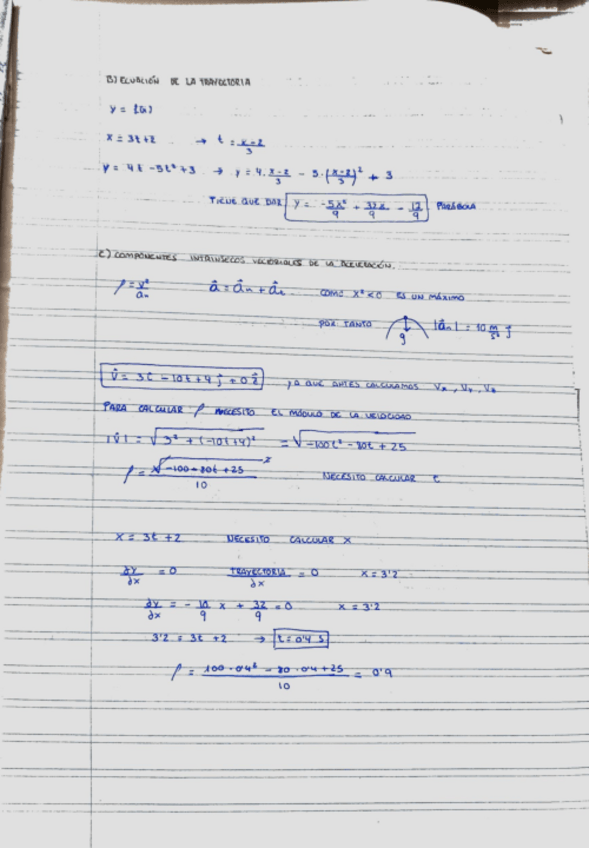 B) ECUACIÓN DE LA TRAYECTORIA
y = f(x)
x = 3t+2 → t = x-2/3
y = 4t - 5t² + 3 → y = 4. x-2/3 - 5. (x-2/3)² + 3
TIENE QUE DAR y = -5x²/9 + 32x/9 - 17/9 PARÁBOLA
C) COMPONENTES INTRÍNSECOS VECTORIALES DE LA ACELERACIÓN.
ρ = v²/an â = ân + ât COMO x² < 0 ES UN MÁXIMO
POR TANTO g |ân| = 10 m/s² j
v̂ = 3î - 10t + 4 ĵ + 0 ẑ YA QUE ANTES CALCULAMOS Vx, Vy, Vz
PARA CALCULAR ρ NECESITO EL MÓDULO DE LA VELOCIDAD
|v̂| = √3² + (-10t+4)² = √-100t² - 80t + 25
ρ = √-100 - 80t + 25 ²/10 NECESITO CALCULAR t
x = 3t + 2 NECESITO CALCULAR x
∂y/∂x = 0 TRAYECTORIA/∂x = 0 x = 3'2
∂y/∂x = - 10/9 x + 32/9 = 0 x = 3'2
3'2 = 3t + 2 → t = 0'4 s
ρ = 100 · 0'4² - 80 · 0'4 + 25/10 = 0'9